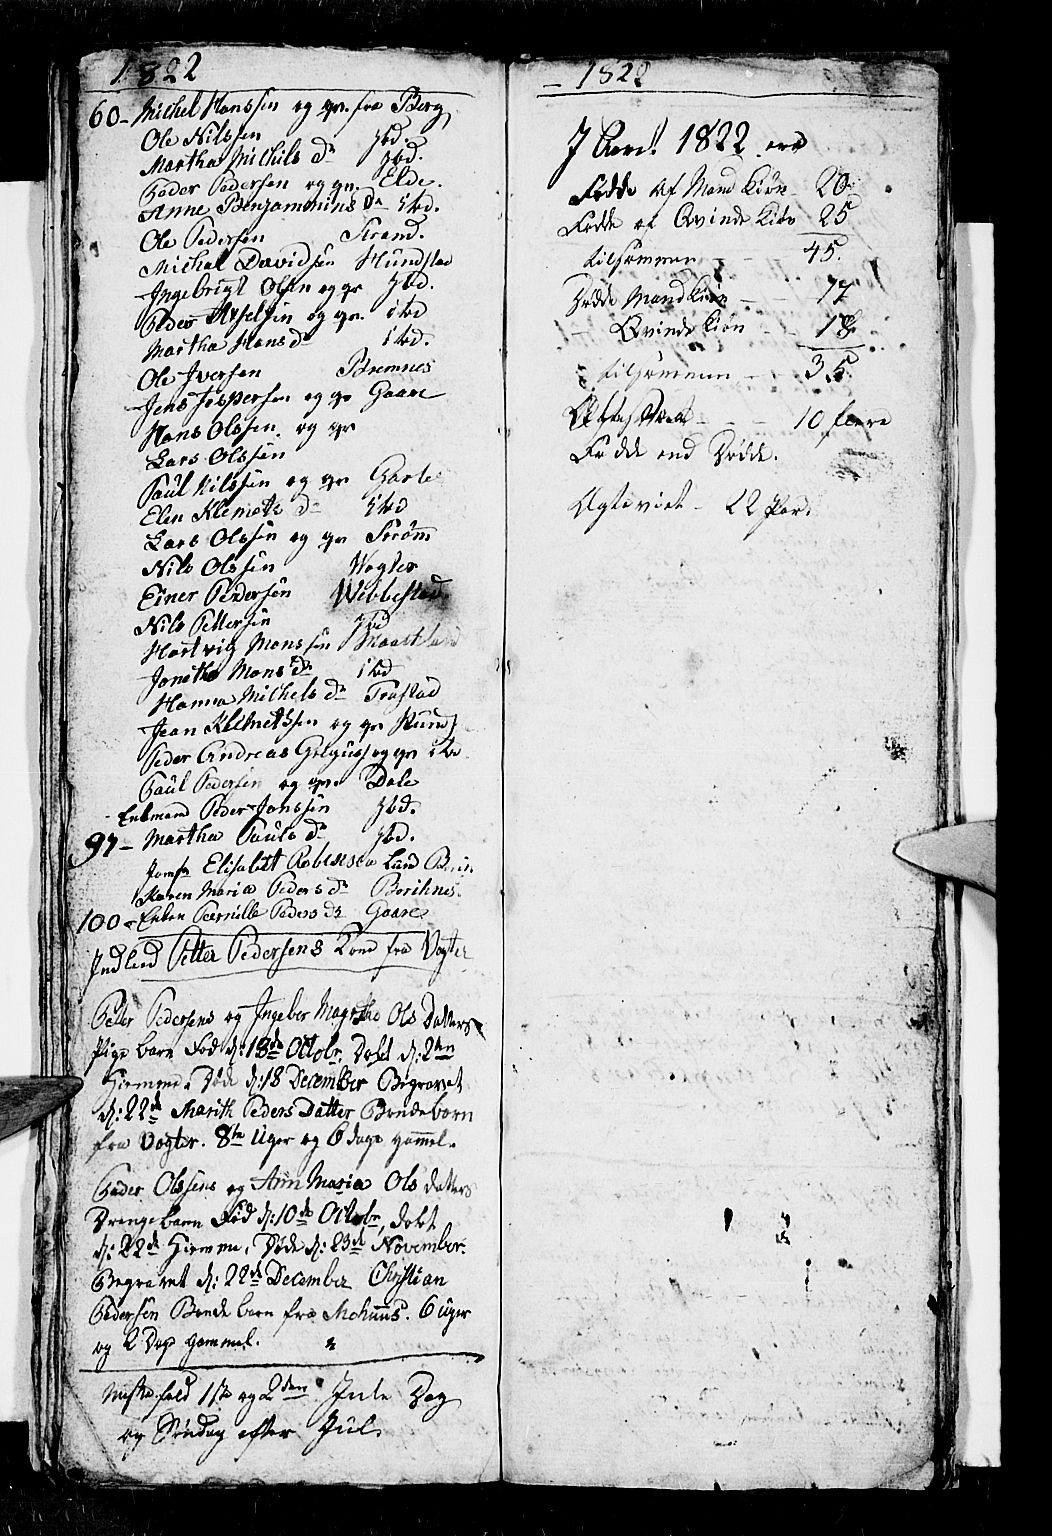 1822
60 - Michel Hanssen og qv. fra Berg
Ole Nilssen ibd.
Martha Michels Dr ibd.
Peder Pedersen og qv. Elde.
Anne Benjamins Dr ibd.
Ole Pedersen Strand.
Michal Davidsen Hundstad
Ingebrigt Olsen og qv ibd.
Peder Axelsen og qv. ibd
Martha Hans dr ibd.
Ole Iversen Bremnes
Jens Jespersen og qv Gaare
Hans Olssen og qv
Lars Olssen
Paul Nilssen og qv
Elen Klemets dr ibd
Lars Olssen og qv Strøm
Nils Olssen Vogter
Einer Pedersen Webbestad
Nils Pettersen ibd
Hartvig Monssen
Jonetha Mons dr ibd
Hanna Michels dr Trastad
Jean Klemetssen og qv
Peder Andreas og qv ibd
Paul Pedersen og qv. Dale
Enkemand Peder Jonssen ibd.
97 - Martha Pauls dr ibd.
Jomfr Elisabet Lund
Karen Maria Peders dr
100 - Enken Pernille Peders dr Gaare
Indleed Petter Pedersens Kone fra Vogter
Peder Pedersens og Ingeber Magrethe Ols Datters
Pige barn Fød d: 18de Octobr. Døbt d: 2den
Hiemme. Døde d: 18 December Begravet
d: 22de Marith Peders Datter Bondebarn
fra Vogter. 8te Uger og 6 dage gammel.
Peder Olssens og Ann Maria Ols datters
Drengebarn Fød d: 10de Octobr, døbt
d: 22de Hiemme, Døde d: 23de November.
Begravet d: 22de December Christian
Pedersen Bonde barn fra 6 uger
og 2 Dage gammel.
Messefald 1ste og 2den Jule Dag
og Søndag efter Jul
- 1822
I Aaret 1822 ere
Fødde af Mandkiøn 20
Fødde af Qvindekiøn 25
tilsammen 45.
Dødde Mandkiøn - - 17
Qvindekiøn - - 18
tilsammen - 35
- - - 10 flere
Fødde end Dødde.
Ægteviet - 22 Par.